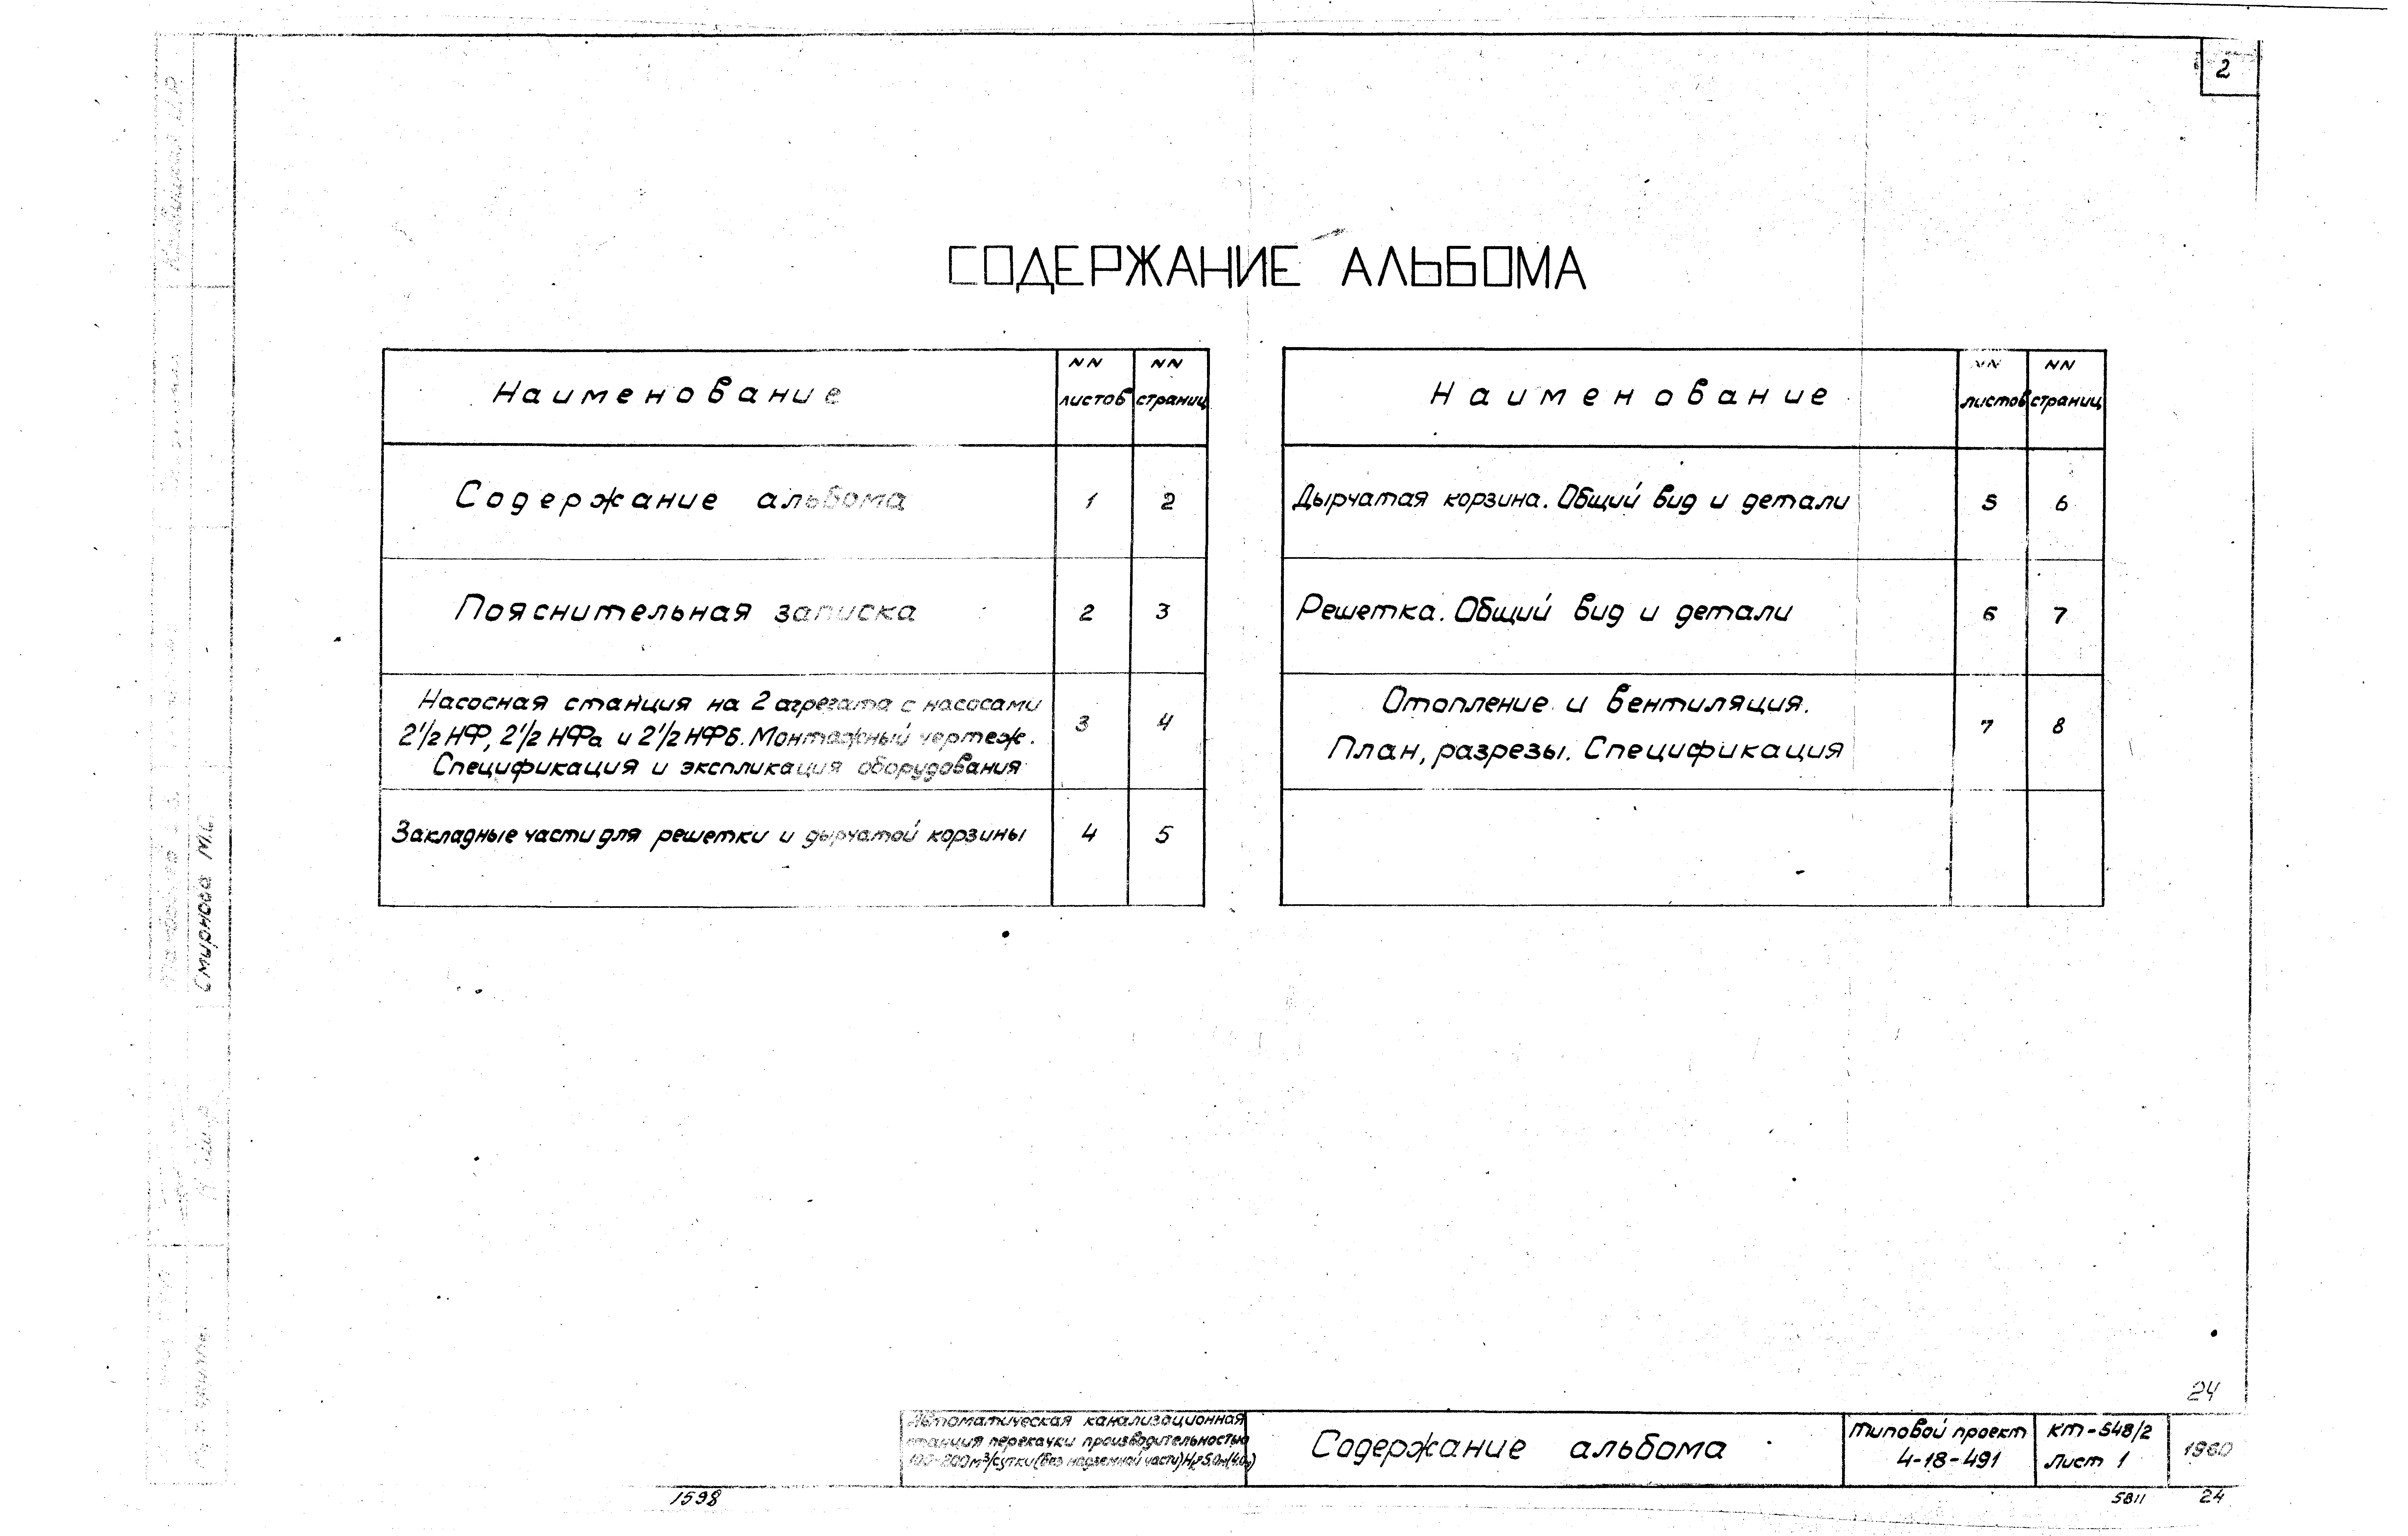 2
СОДЕРЖАНИЕ АЛЬБОМА
Наименование NN листов NN страниц
Содержание альбома 1 2
Пояснительная записка 2 3
Насосная станция на 2 агрегата с насосами
2½ НФ, 2½ НФа и 2½ НФб. Монтажный чертеж. 3 4
Спецификация и экспликация оборудования
Закладные части для решетки и дырчатой корзины 4 5
Наименование NN листов NN страниц
Дырчатая корзина. Общий вид и детали 5 6
Решетка. Общий вид и детали 6 7
Отопление и вентиляция.
План, разрезы. Спецификация 7 8
Смирнова
24
Автоматическая канализационная
станция перекачки производительностью
100-200 м³/сутки (без надземной части)
Содержание альбома
Типовой проект
4-18-491
КТ-548/2
Лист 1
1960
1598
5811 24